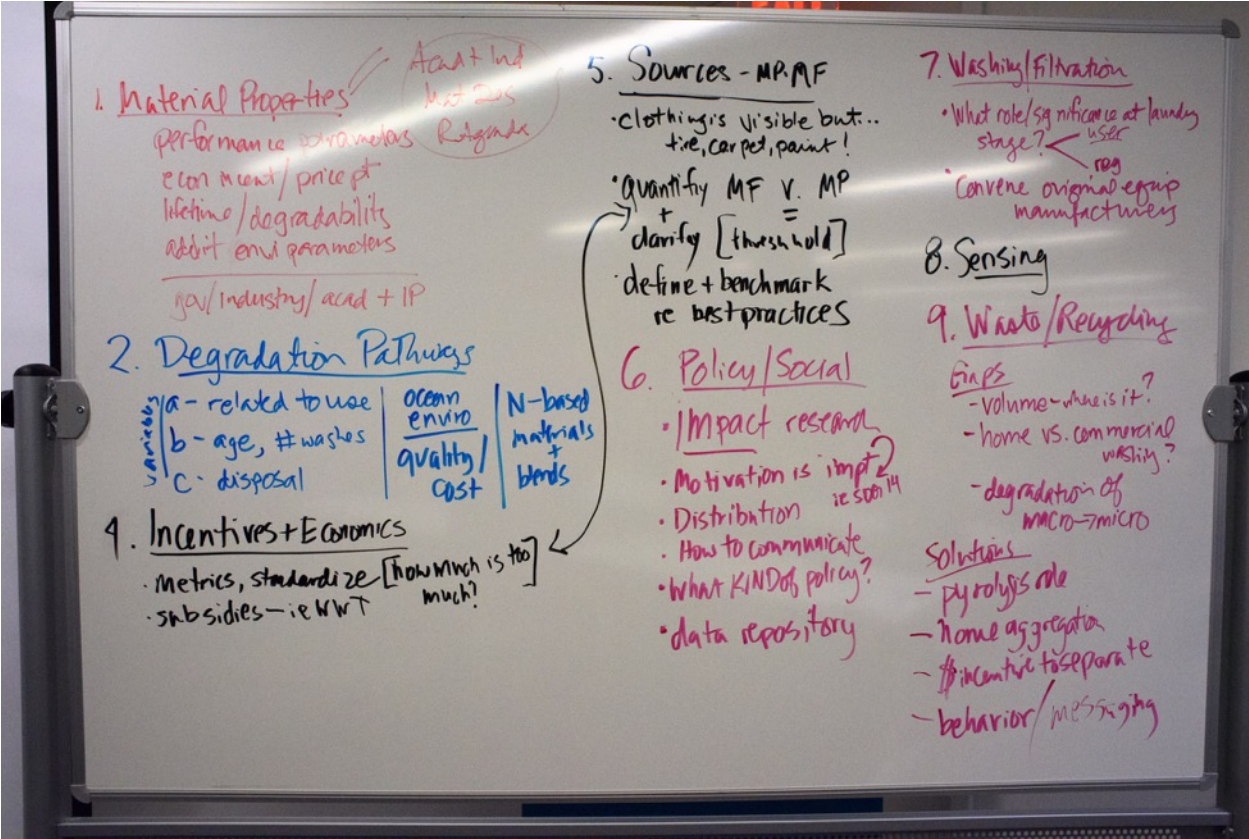 1. Material Properties
Acad + Ind
Mat
performance parameters
econ / price pt
lifetime/degradability
addit envi parameters
gov/industry/acad + IP
2. Degradation Pathways
variables
a - related to use
b - age, # washes
c - disposal
ocean
enviro
quality/
cost
N-based
materials
+
blends
4. Incentives + Economics
· metrics, standardize [how much is too
much?]
· subsidies - ie WWT
5. Sources - MP, MF
· clothing is visible but...
tire, carpet, paint!
· quantifiy MF v. MP
+
clarify [threshhold]
· define + benchmark
re best practices
6. Policy/Social
· Impact research
· Motivation is impt
ie
· Distribution
· How to communicate
· What KIND of policy?
· data repository
7. Washing/Filtration
· What role/significance at laundry
stage? < user
reg
· Convene original equip
manufacturers
8. Sensing
9. Waste/Recycling
Gaps
- volume - where is it?
- home vs. commercial
washing?
- degradation of
macro → micro
Solutions
- pyrolysis role
- home aggregation
- $ incentive to separate
- behavior/messaging
EXIT